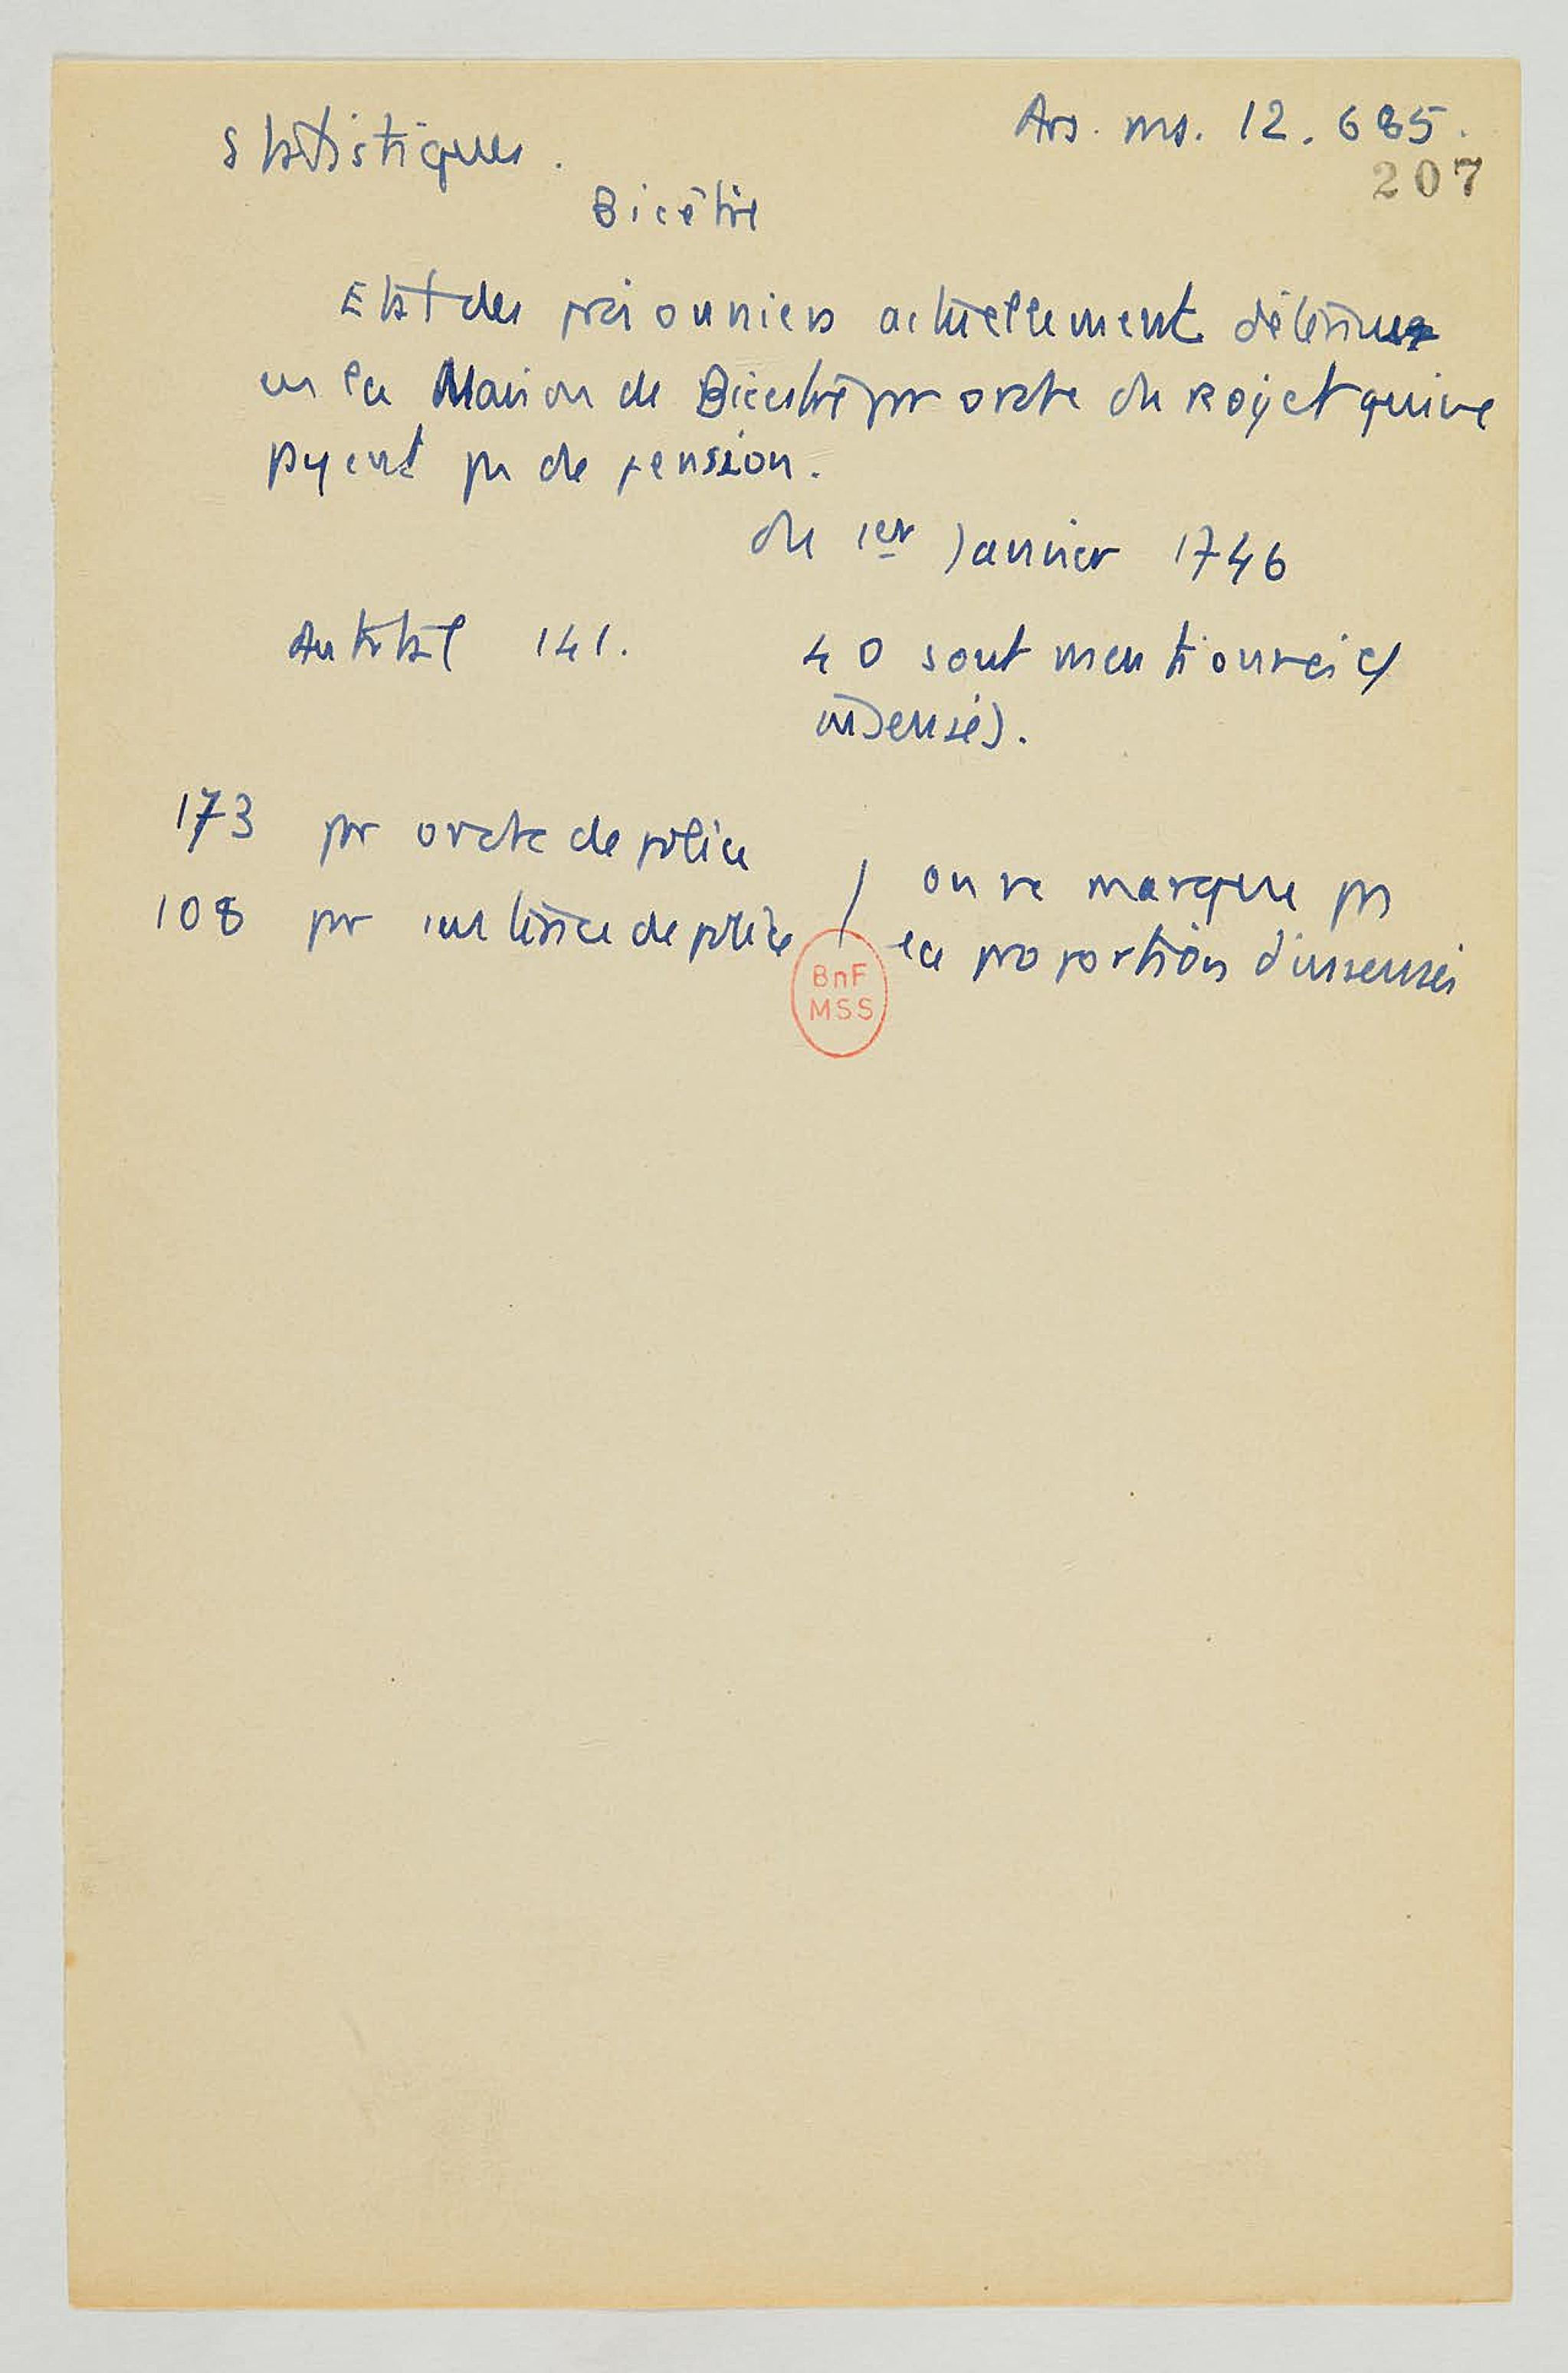 Statistiques.
Ars. ms. 12.685.
207
Bicêtre
Etat des prisonniers actuellement détenus
en la Maison de Bicestre par ordre du Roy et qui ne
payent pas de pension.
du 1er Janvier 1746
Au total 141.
40 sont mentionnés c/
insensés.
173 par ordre de police
108 par sentence de police
on ne marque pas
la proportion d'insensés
BnF
MSS